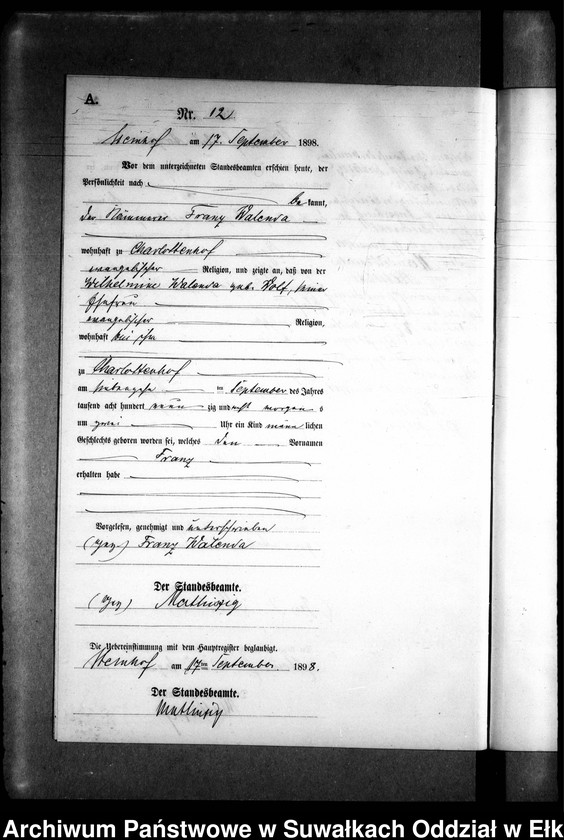 A.
Nr. 12
Steinhof am 17. September 1898.
Vor dem unterzeichneten Standesbeamten erschien heute, der
Persönlichkeit nach
bekannt,
der Kämmerer Franz Walenda
wohnhaft zu Charlottenhof
evangelischer Religion, und zeigte an, daß von der
Wilhelmine Walenda geb. Wolf, seiner
Ehefrau
evangelischer Religion,
wohnhaft bei ihm
zu Charlottenhof
am siebzehn im September des Jahres
tausend acht hundert neunzig und acht morgens
um zwei Uhr ein Kind männlichen
Geschlechts geboren worden sei, welches den Vornamen
Franz
erhalten habe
Vorgelesen, genehmigt und unterschrieben
(gez.) Franz Walenda
Der Standesbeamte.
(gez)
Die Uebereinstimmung mit dem Hauptregister beglaubigt.
Steinhof am 17ten September 1898.
Der Standesbeamte.
Archiwum Państwowe w Suwałkach Oddział w Ełk